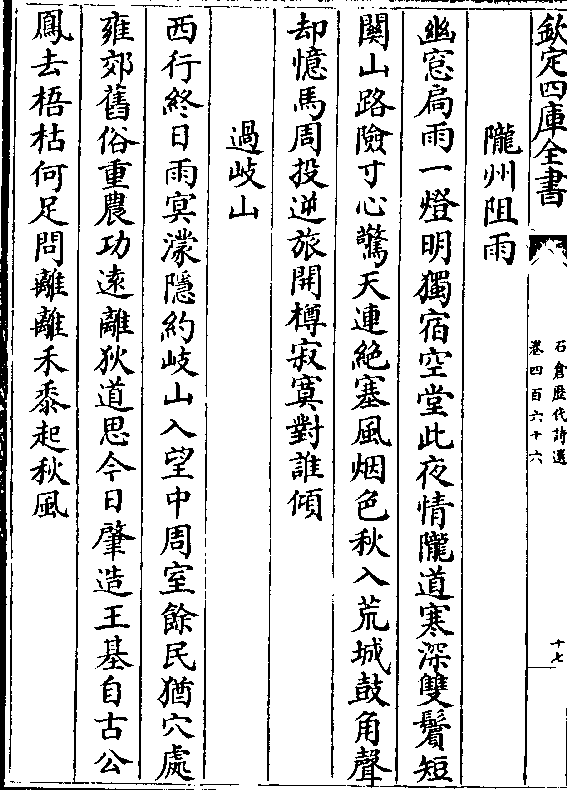 欽定四庫全書
石倉歴代詩選
卷四百六十六
十七
隴州阻雨
幽窓扃雨一燈明獨宿空堂此夜情隴道寒深雙鬢短
關山路險寸心驚天連絶塞風烟色秋入荒城鼓角聲
却憶馬周投逆旅開樽寂寞對誰傾
過岐山
西行終日雨㝠濛隱約岐山入望中周室餘民猶穴處
雍郊舊俗重農功遠離狄道思今日肇造王基自古公
鳳去梧枯何足問離離禾黍起秋風